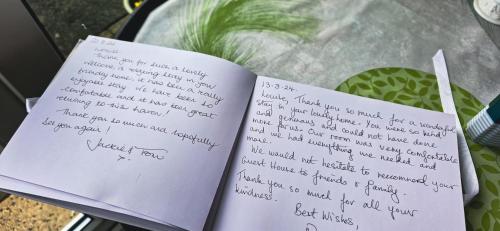 Thank you for such a lovely
welcome, a relaxing stay in your
friendly home, it has been a really
enjoyable stay. We have been so
comfortable and it has been great
returning to this haven!
Thank you so much and hopefully
see you again!
Jackie &
x
13-8-24.
Thank you so much for a wonderful
stay in your lovely home. You were so kind
and generous and could not have done
more for us. Our room was very comfortable
and we had everything we needed and
more.
We would not hesitate to recommend your
Guest House to friends & family.
Thank you so much for all your
kindness.
Best Wishes,